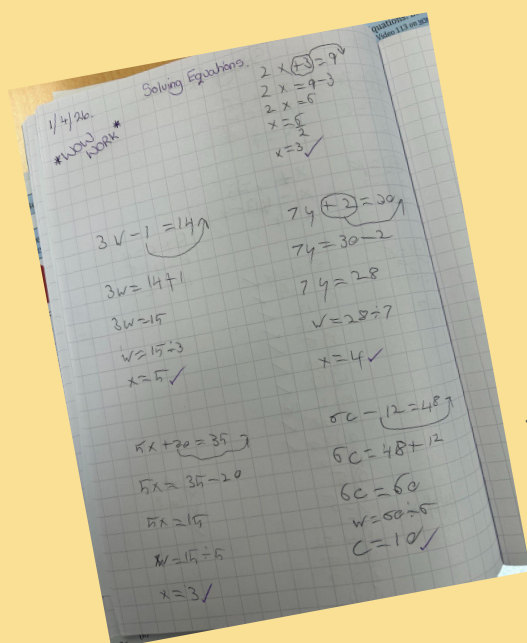 equations,
Video 113 on
1/4/26.
Solving Equations.
*WOW WORK*
2x+3=9
2x=9-3
2x=6
x=6/2
x=3✓
3w-1=14
3w=14+1
3w=15
w=15÷3
x=5✓
7y+2=30
7y=30-2
7y=28
w=28÷7
x=4✓
5x+20=35
5x=35-20
5x=15
w=15÷5
x=3✓
6c-12=48
6c=48+12
6c=60
w=60÷6
c=10✓